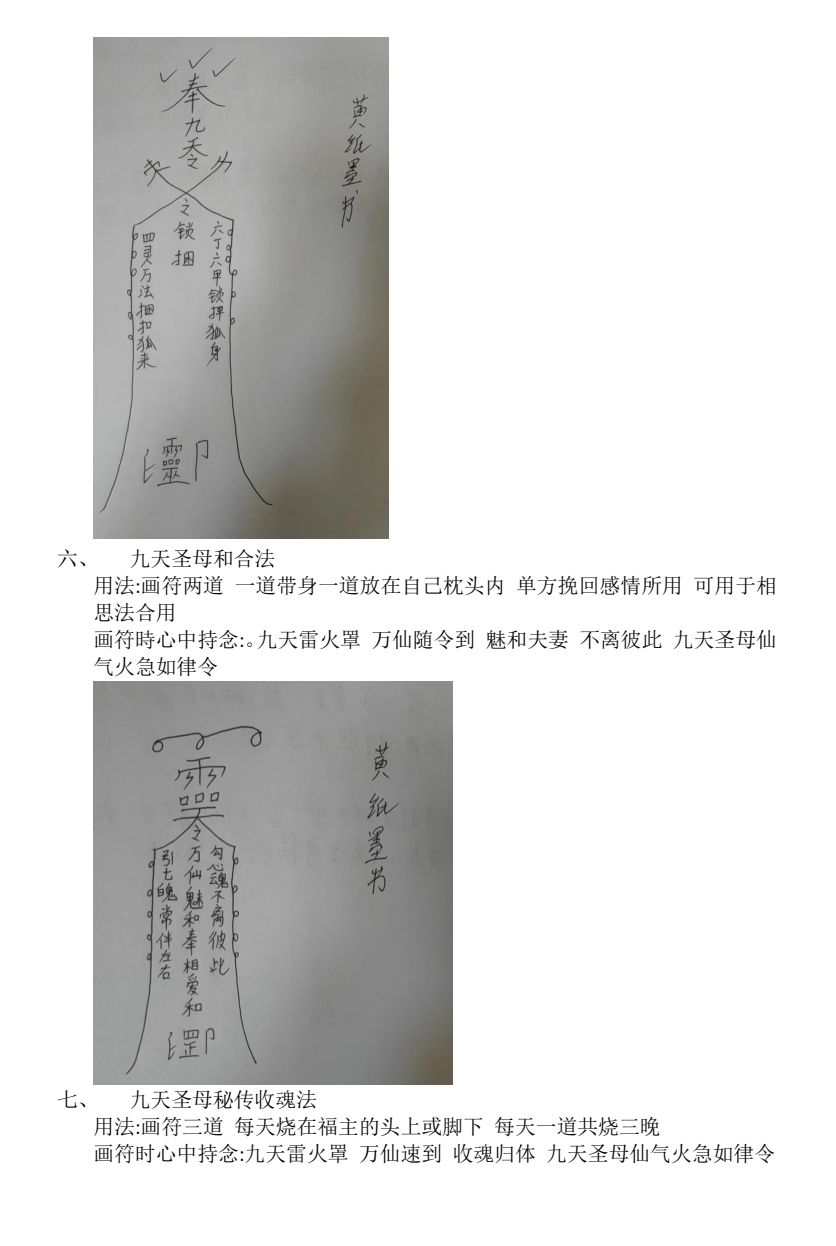 奉
九
天
令
之
锁
捆
六丁六甲锁押狐身
四灵万法捆扣狐来
靈
黄纸墨书
六、 九天圣母和合法
用法:画符两道 一道带身一道放在自己枕头内 单方挽回感情所用 可用于相
思法合用
画符時心中持念:。九天雷火罩 万仙随令到 魅和夫妻 不离彼此 九天圣母仙
气火急如律令
令
万仙魅和奉相爱和
勾心魂不离彼此
引七魄常伴左右
罡
黄纸墨书
七、 九天圣母秘传收魂法
用法:画符三道 每天烧在福主的头上或脚下 每天一道共烧三晚
画符时心中持念:九天雷火罩 万仙速到 收魂归体 九天圣母仙气火急如律令